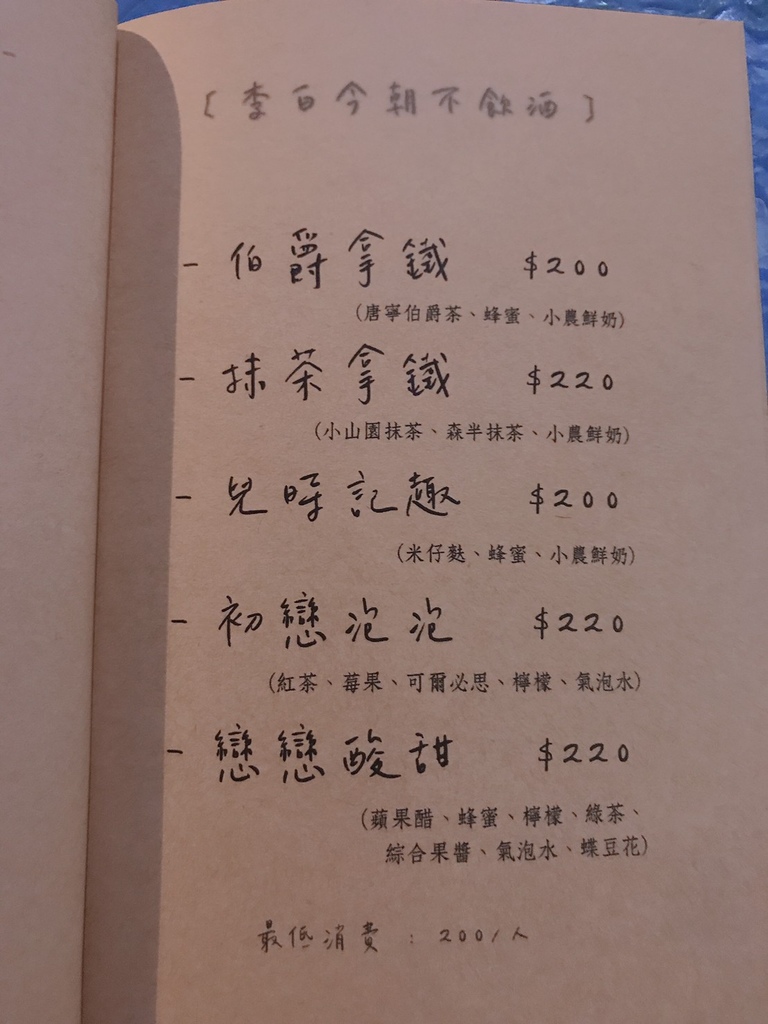 ［李白今朝不飲酒］
- 伯爵拿鐵 $200
(唐寧伯爵茶、蜂蜜、小農鮮奶)
- 抹茶拿鐵 $220
(小山園抹茶、森半抹茶、小農鮮奶)
- 兒時記趣 $200
(米仔麩、蜂蜜、小農鮮奶)
- 初戀泡泡 $220
(紅茶、莓果、可爾必思、檸檬、氣泡水)
- 戀戀酸甜 $220
(蘋果醋、蜂蜜、檸檬、綠茶、
綜合果醬、氣泡水、蝶豆花)
最低消費：200/人